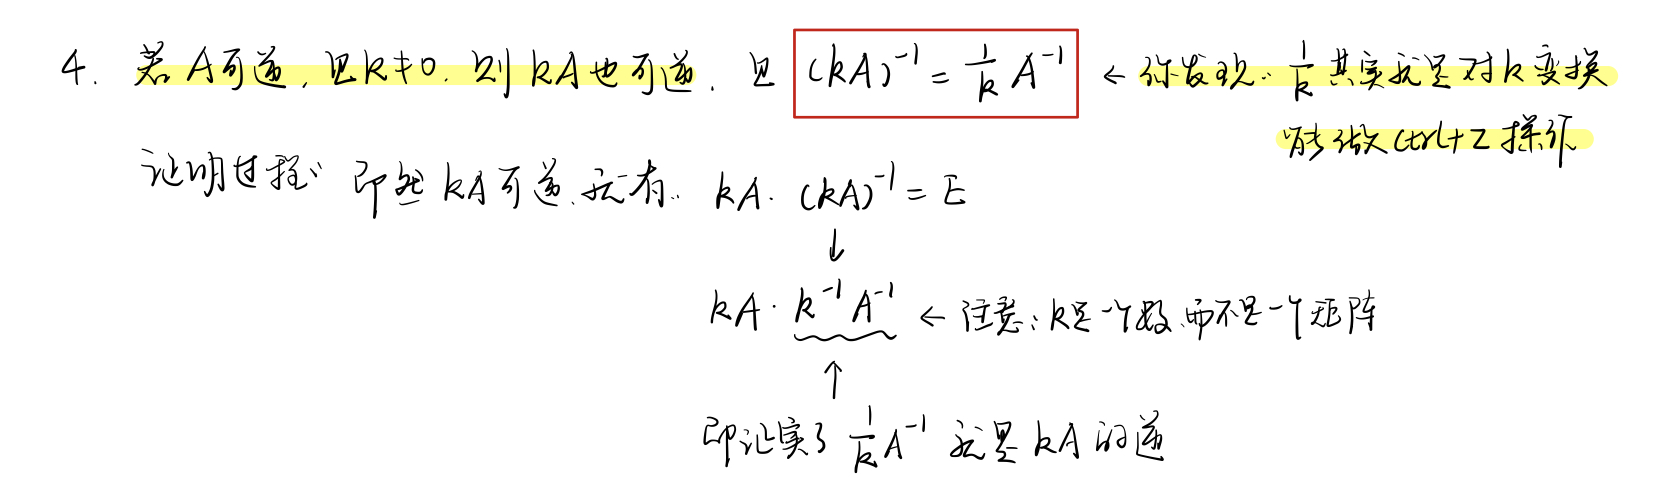 4. 若A可逆,且k≠0,则kA也可逆,且 (kA)⁻¹ = 1/k A⁻¹ ← 你发现: 1/k 其实就是对k变换
能做ctrl+Z操作
证明过程: 即然kA可逆,就有: kA·(kA)⁻¹ = E
↓
kA·k⁻¹A⁻¹ ← 注意:k是一个数,而不是一个矩阵
↑
即证实了 1/k A⁻¹ 就是kA的逆